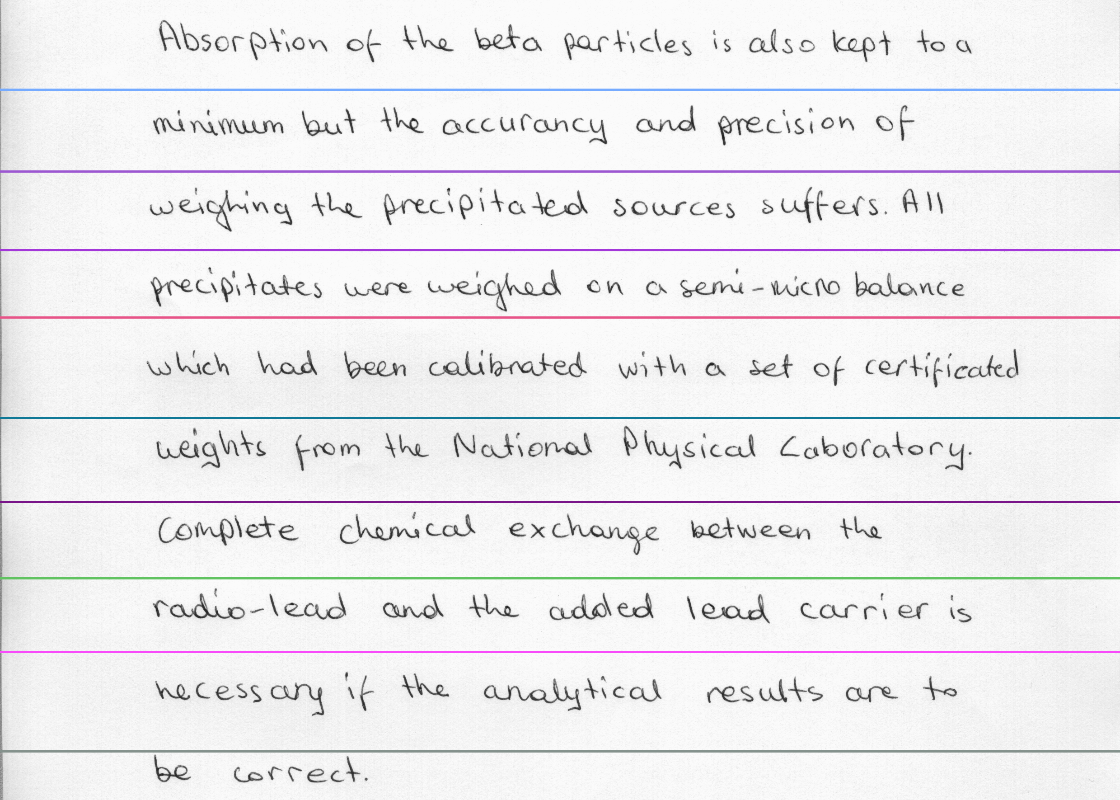 Absorption of the beta particles is also kept to a
minimum but the accurancy and precision of
weighing the precipitated sources suffers. All
precipitates were weighed on a semi-micro balance
which had been calibrated with a set of certificated
weights from the National Physical Laboratory.
Complete chemical exchange between the
radio-lead and the added lead carrier is
necessary if the analytical results are to
be correct.